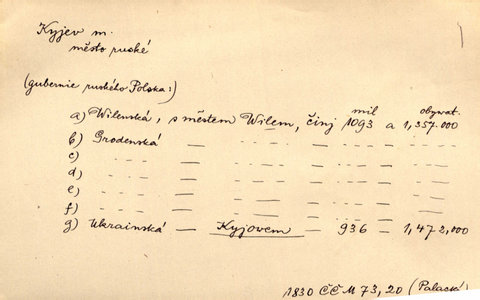 Kyjev m.
město ruské
(gubernie ruského Polska:)
mil obywat.
a) Wilenská, s městem Wilem, činj 1093 a 1,357.000
b) Grodenská — — — — —
c) - - - — — — — —
d) - - - — — — — —
e) - - - — — — — —
f) - - - — — — — —
g) Ukrainská — Kyjovem — 936 — 1,472,000
1830 ČČM 73, 20 (Palacký)